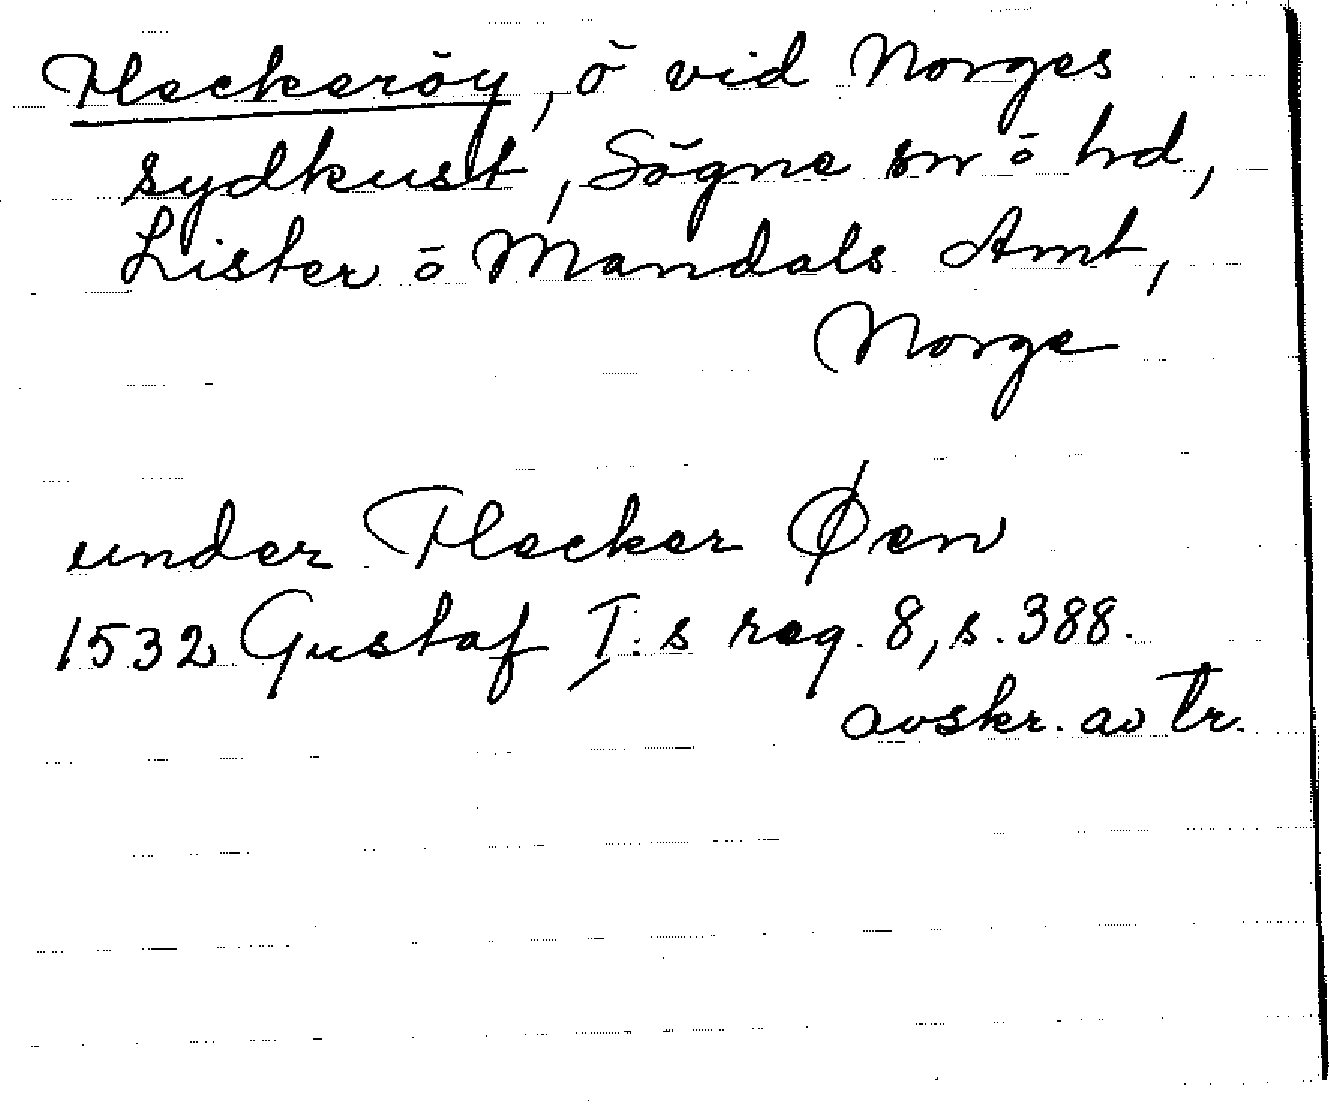 Fleckeröy, ö vid Norges
sydkust, Sögne sn o hd,
Lister o Mandals Amt,
Norge
under Flecker Øen
1532 Gustaf I:s reg. 8, s. 388.
avskr. av Tr.